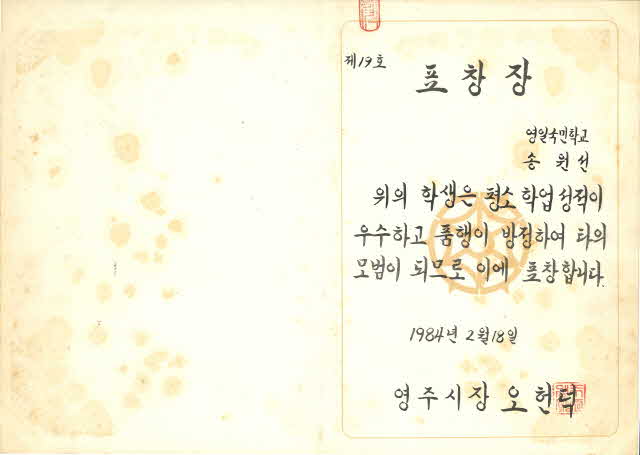 제19호
표창장
영일국민학교
송원선
위의 학생은 평소 학업성적이
우수하고 품행이 방정하여 타의
모범이 되므로 이에 표창합니다.
1984년 2월 18일
영주시장 오헌덕